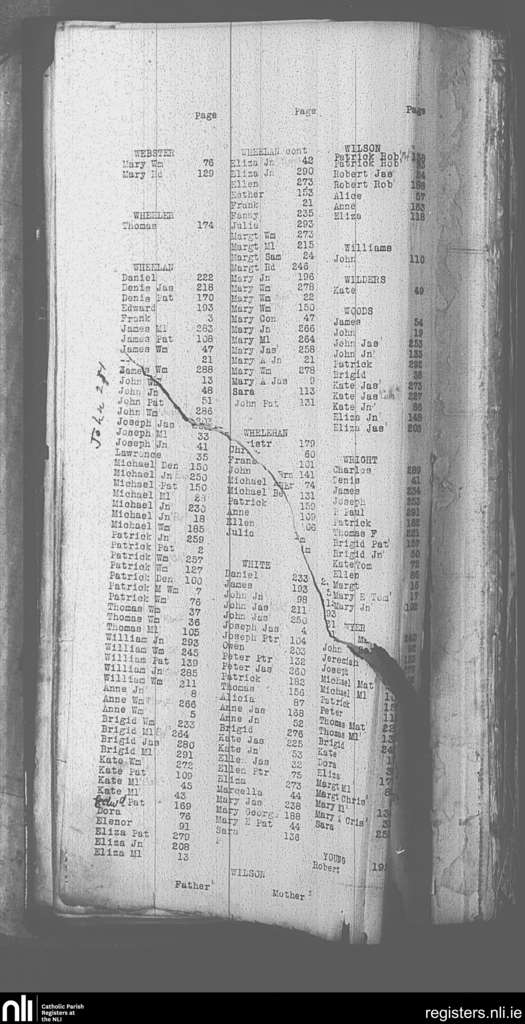 Page
WEBSTER
Mary Wm 76
Mary Rd 129
WHEELER
Thomas 174
WHEELAN
Daniel 222
Denis Jas 218
Denis Pat 170
Edward 193
Frank 3
James Ml 283
James Pat 108
James Wm 47
21
James Wm 288
John Wm 13
John Jn 48
John Pat 51
John Wm 286
Joseph Jas
Joseph Ml 33
Joseph Jn 41
Lawrence 35
Michael Den 150
Michael Jn 250
Michael Pat 150
Michael Ml
Michael Jn 230
Michael Rd 18
Michael Wm 185
Patrick Jn 259
Patrick Pat 2
Patrick Wm 257
Patrick Wm 127
Patrick Den 100
Patrick M Wm 7
Patrick Wm 76
Thomas Wm 37
Thomas Wm 36
Thomas Ml 105
William Jn 293
William Wm 243
William Pat 139
William Jn 285
William Wm 211
Anne Jn 8
Anne Wm 266
Anne Wm 5
Brigid Wm 233
Brigid Ml 264
Brigid Jas 280
Brigid Ml 291
Kate Wm 272
Kate Pat 109
Kate Ml 45
Kate Ml 43
Edwd Pat 169
Dora 76
Elenor 91
Eliza Pat 279
Eliza Jn 208
Eliza Ml 13
John 284
Father
Page
WHEELAN cont
Eliza Jn 42
Eliza Jn 290
Ellen 273
Esther 153
Frank 21
Fanny 235
Julia 293
Margt Wm 273
Margt Ml 215
Margt Sam 24
Margt Rd 246
Mary Jn 196
Mary Wm 278
Mary Wm 22
Mary Wm 150
Mary Con 47
Mary Jn 266
Mary Ml 264
Mary Jas 258
Mary A Jn 21
Mary Wm 278
Mary A Jas 9
Sara 113
John Pat 131
WHELEHAN
179
60
John 101
Michael 141
Michael 74
Patrick 131
Anne 159
Ellen 109
Julia
WHITE
Daniel 233
James 193
John Jn 98
John Jas 211
John Jas 250
Joseph Jas 4
Joseph Ptr 104
Owen 203
Peter Ptr 132
Peter Jas 260
Patrick 182
Thomas 156
Alicia 87
Anne Jas 168
Anne Jn 52
Brigid 276
Kate Jas 225
Kate Jn 53
Ellen Jas 32
Ellen Ptr 75
Eliza 273
Marcella 44
Mary Jas 238
Mary George 188
Mary E Pat 44
Sara 136
WILSON
Mother
Page
WILSON
Patrick Rob
Patrick Rob
Robert Jas
Robert Rob
Alice 57
Anne
Eliza 118
Williams
John 110
WILDERS
Kate 49
WOODS
James 54
John 19
John Jas 253
John Jn
Patrick
Brigid
Kate Jas 273
Kate Jas 227
Kate Jn
Eliza Jn
Eliza Jas
WRIGHT
Charles 289
Denis 41
James 234
Joseph
P Paul 291
Patrick
Thomas F 221
Brigid Pat 157
Brigid Jn
Kate Tom
Ellen
Margt
Mary E Tom
Mary Jn
WYER
John
Jeremiah
Joseph
Michael Mat
Michael Ml
Patrick
Peter
Thomas Mat
Thomas Ml
Brigid
Kate
Dora
Eliza
Margt Ml
Margt Chris
Mary Ml
Mary A Cris
Sara
YOUNG
Robert
nli
Catholic Parish
Registers at
the NLI
registers.nli.ie